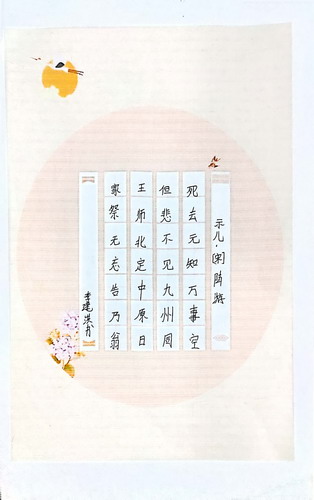 示儿·[宋]陆游
死去元知万事空
但悲不见九州同
王师北定中原日
家祭无忘告乃翁
李建洪书